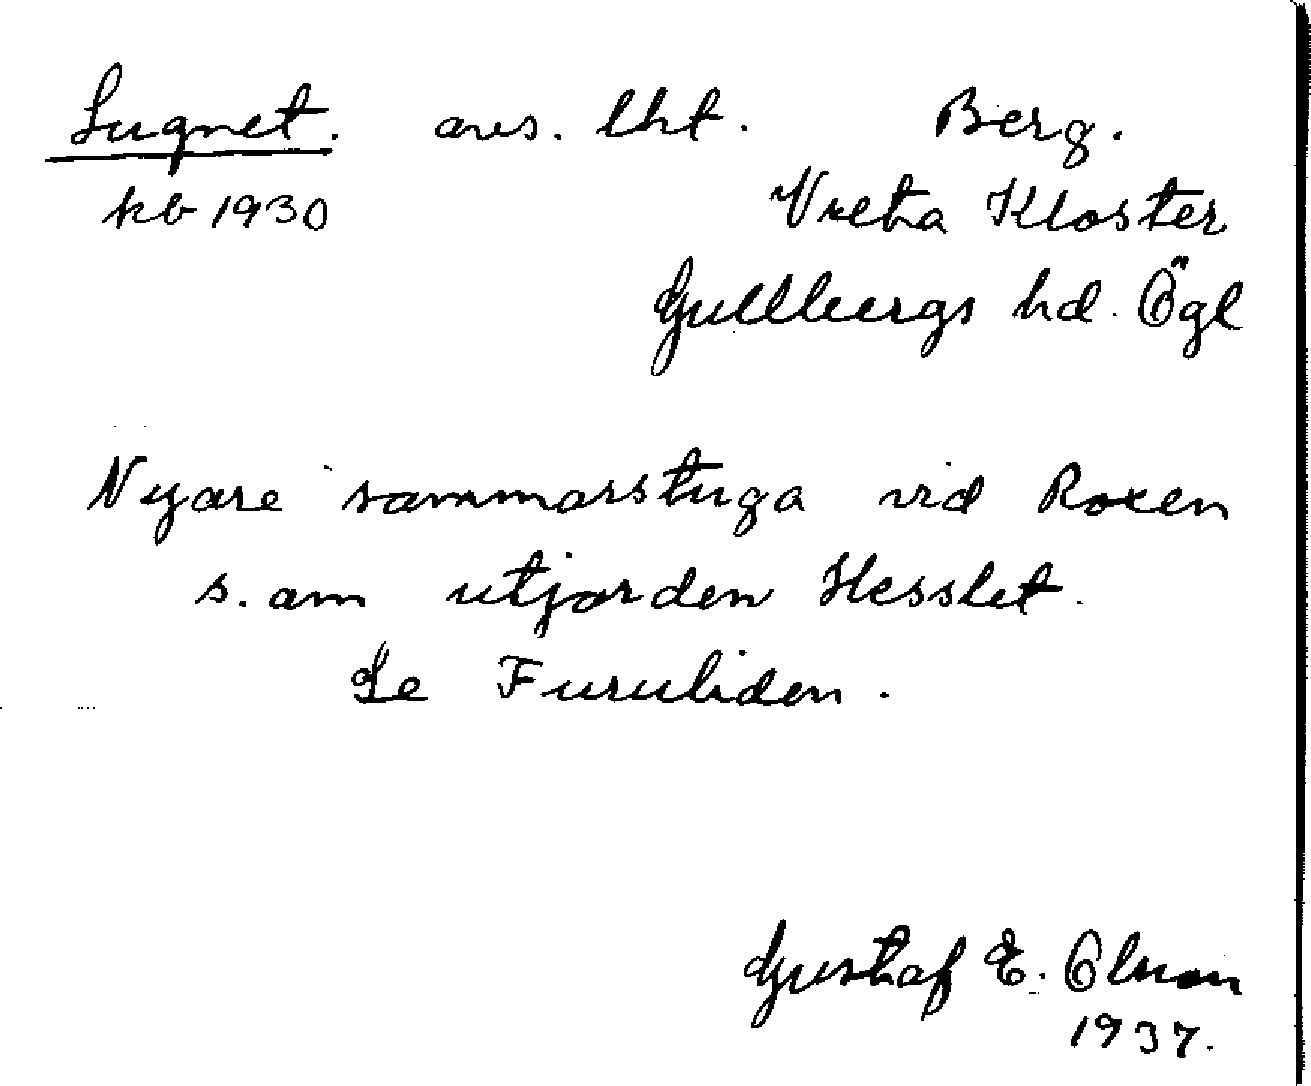 Lugnet. avs. lht. Berg.
kb 1930 Vreta Kloster
Gullbergs hd. Ögl
Nyare sommarstuga vid Roxen
s. om utjorden Hesslet.
Se Furuliden.
Gustaf E. Olsson
1937.